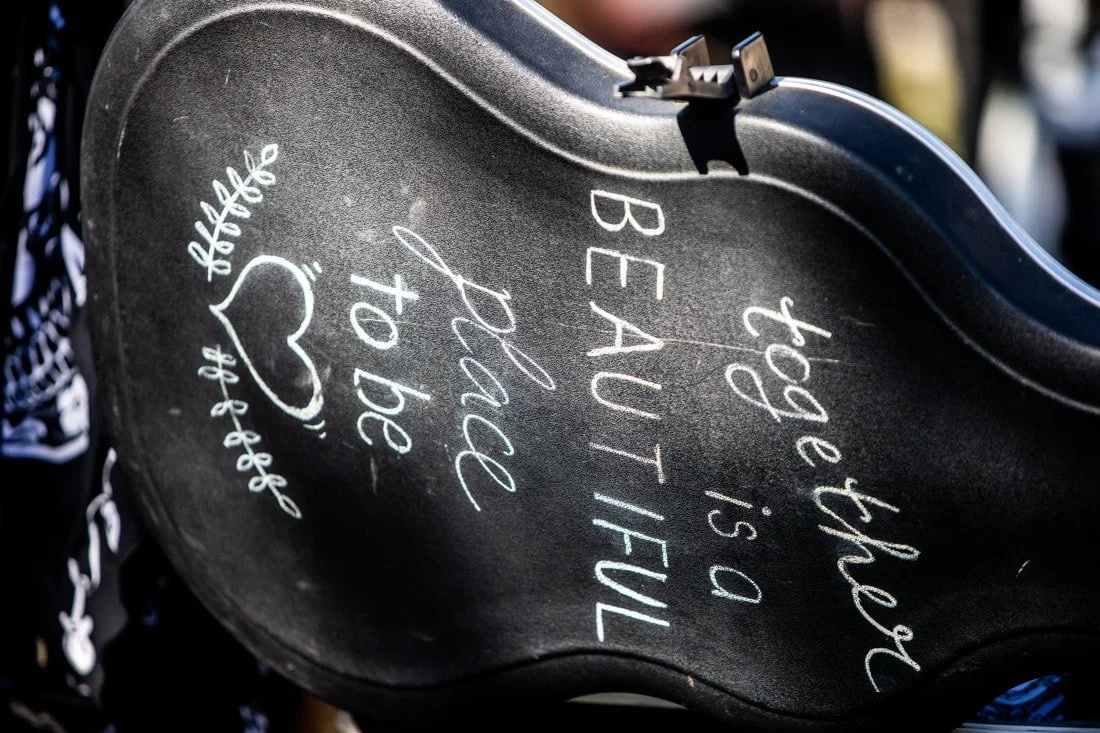 together
is a
BEAUTIFUL
place
to be